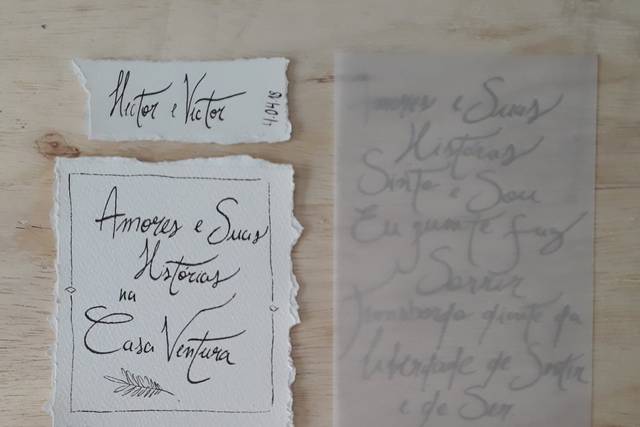 Hector e Victor
4.04.19
Amores e Suas
Histórias
na
Casa Ventura
Amores e Suas
Histórias
Sinto e Sou
Eu quem te faz
Sorrir
Transbordo diante da
liberdade de Sentir
e de Ser